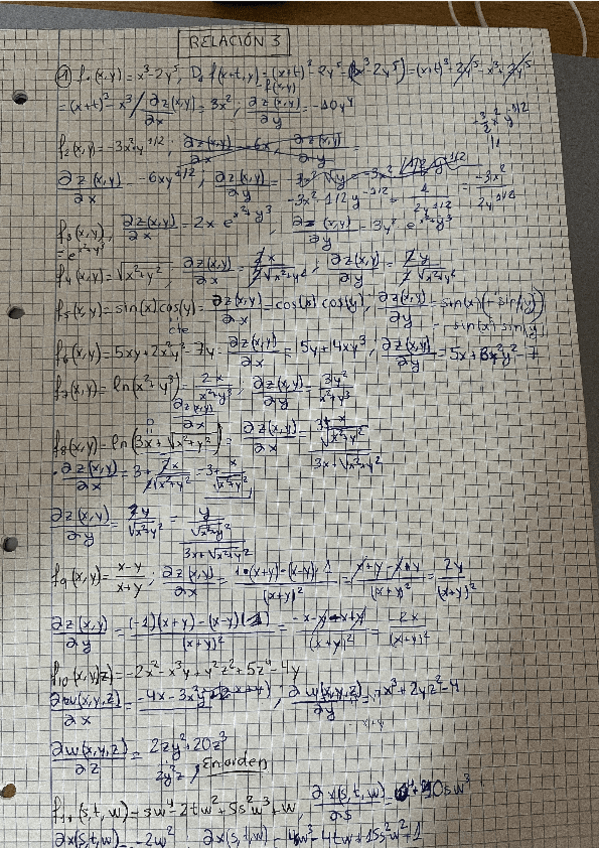 RELACIÓN 3
① f₁(x,y) = x³-2y⁵, D f(x+t,y) = (x+t)³-2y⁵-(x³-2y⁵) = (x+t)³-2y⁵-x³+2y⁵
f(x,y)
= (x+t)³-x³ / ∂z(x,y)/∂x = 3x²; ∂z(x,y)/∂y = -10y⁴
f₂(x,y) = -3x²y^1/2; ∂z(x,y)/∂x 6x, ∂z(x,y)/∂y =
-3/2 x² y^-1/2
∂z(x,y)/∂x = -6xy^1/2; ∂z(x,y)/∂y = -3x²·1/2 y^-1/2 = -3x²/2y^1/2
f₃(x,y) = e^x²+y³, ∂z(x,y)/∂x = 2x e^x²+y³, ∂z(x,y)/∂y = 3y² e^x²+y³
f₄(x,y) = √x²+y², ∂z(x,y)/∂x = 2x/2√x²+y²; ∂z(x,y)/∂y = 2y/2√x²+y²
f₅(x,y) = sin(x)cos(y) = ∂z(x,y)/∂x = cos(x) cos(y), ∂z(x,y)/∂y = sin(x)(-sin(y))
- sin(x) sin(y)
cte
f₆(x,y) = 5xy+2x²y³-7y = ∂z(x,y)/∂x = 5y+4xy³, ∂z(x,y)/∂y = 5x+6x²y²-7
f₇(x,y) = ln(x²+y³) = 2x/x²+y³; ∂z(x,y)/∂y = 3y²/x²+y³
∂z(x,y)/∂x
f₈(x,y) = ln(3x+√x²+y²) = ∂z(x,y)/∂x = 3+x/√x²+y² / 3x+√x²+y²
· ∂z(x,y)/∂x = 3+2x/2√x²+y² = 3+x/√x²+y²
∂z(x,y)/∂y = 2y/√x²+y² = y/√x²+y² / 3x+√x²+y²
f₉(x,y) = x-y/x+y; ∂z(x,y)/∂x = 1·(x+y)-(x-y)·1/(x+y)² = x+y-x+y/(x+y)² = 2y/(x+y)²
∂z(x,y)/∂y = (-1)(x+y)-(x-y)(1)/(x+y)² = -x-y-x+y/(x+y)² = -2x/(x+y)²
f₁₀(x,y,z) = -2x²-x³y+y²z²+5z⁴-4y
∂w(x,y,z)/∂x = -4x-3x²y, ∂w(x,y,z)/∂y = -x³+2yz²-4
∂w(x,y,z)/∂z = 2zy²+20z³
2y²z, En orden
f₁₁(s,t,w) = sw⁴-2tw²+5s²w³+w, ∂x(s,t,w)/∂s = w⁴+10sw³
∂x(s,t,w) = -2w², ∂x(s,t,w) = 4w³-4tw+15s²w²+1